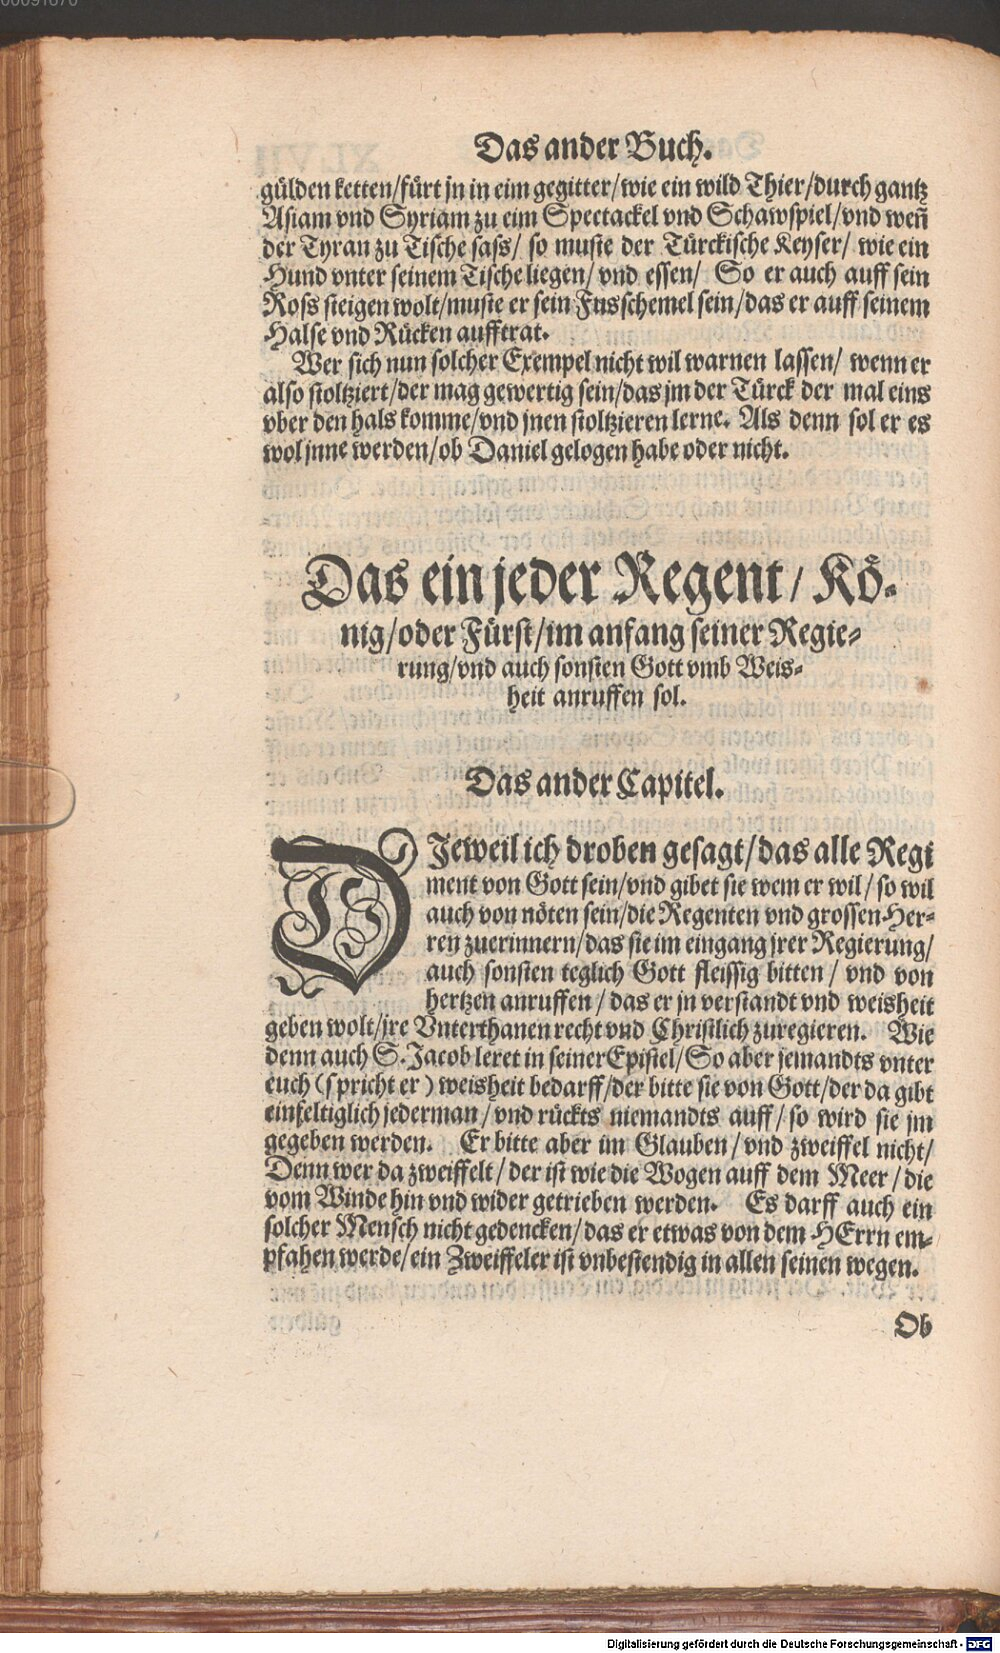 Das ander Buch.
gülden ketten/fürt jn in eim gegitter/wie ein wild Thier/durch gantz
Asiam vnd Syriam zu eim Spectackel vnd Schawspiel/vnd weñ
der Tyran zu Tische sass/ so muste der Türckische Keyser/ wie ein
Hund vnter seinem Tische liegen/ vnd essen/ So er auch auff sein
Ross steigen wolt/muste er sein Fusschemel sein/das er auff seinem
Halse vnd Rücken aufftrat.
Wer sich nun solcher Exempel nicht wil warnen lassen/ wenn er
also stoltziert/der mag gewertig sein/das jm der Türck der mal eins
vber den hals komme/vnd jnen stoltzieren lerne. Als denn sol er es
wol jnne werden/ob Daniel gelogen habe oder nicht.
Das ein jeder Regent/ Kö-
nig/oder Fürst/im anfang seiner Regie-
rung/vnd auch sonsten Gott vmb Weis-
heit anruffen sol.
Das ander Capitel.
DJeweil ich droben gesagt/das alle Regi
ment von Gott sein/vnd gibet sie wem er wil/ so wil
auch von nöten sein/die Regenten vnd grossen Her-
ren zuerinnern/das sie im eingang jrer Regierung/
auch sonsten teglich Gott fleissig bitten/ vnd von
hertzen anruffen/ das er jn verstandt vnd weisheit
geben wolt/jre Vnterthanen recht vnd Christlich zuregieren. Wie
denn auch S. Jacob leret in seiner Epistel/ So aber jemandts vnter
euch (spricht er) weisheit bedarff/der bitte sie von Gott/der da gibt
einfeltiglich jederman/ vnd rückts niemandts auff/ so wird sie jm
gegeben werden. Er bitte aber im Glauben/ vnd zweiffel nicht/
Denn wer da zweiffelt/ der ist wie die Wogen auff dem Meer/ die
vom Winde hin vnd wider getrieben werden. Es darff auch ein
solcher Mensch nicht gedencken/ das er etwas von dem HErrn em-
pfahen werde/ ein Zweiffeler ist vnbestendig in allen seinen wegen.
Ob
Digitalisierung gefördert durch die Deutsche Forschungsgemeinschaft - DFG